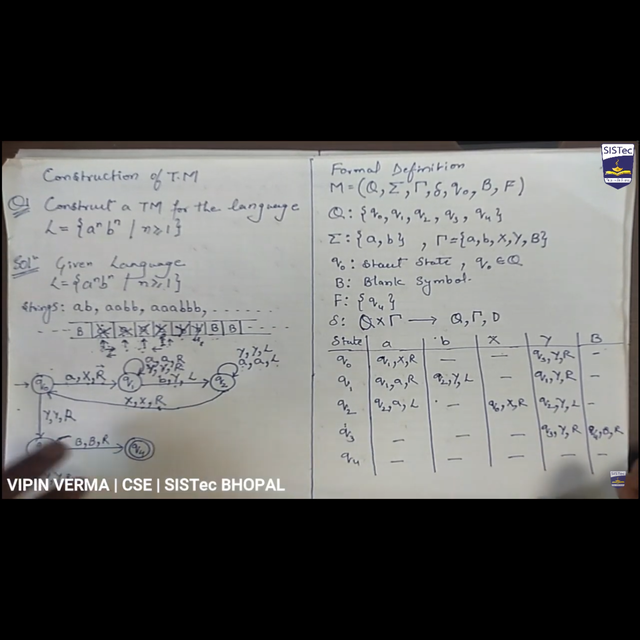 Construction of T.M
Q1 Construct a TM for the language
L = {aⁿbⁿ | n≥1}
Solⁿ Given Language
L = {aⁿbⁿ | n≥1}
Strings: ab, aabb, aaabbb,
B B B
a, X, R
a, a, R
Y, Y, R
b, Y, L
Y, Y, L
a, a, L
q0 q1 q2
X, X, R
Y, Y, R
B, B, R
q4
Formal Definition
M = (Q, Σ, Γ, δ, q0, B, F)
Q: {q0, q1, q2, q3, q4}
Σ: {a, b}, Γ = {a, b, X, Y, B}
q0: Start State, q0 ∈ Q
B: Blank Symbol.
F: {q4}
δ: Q × Γ → Q, Γ, D
State a b X Y B
q0 q1, X, R — — q3, Y, R —
q1 q1, a, R q2, Y, L — q1, Y, R —
q2 q2, a, L - q0, X, R q2, Y, L —
q3 — — — q3, Y, R q4, B, R
q4 — — — — —
VIPIN VERMA | CSE | SISTec BHOPAL
SISTec